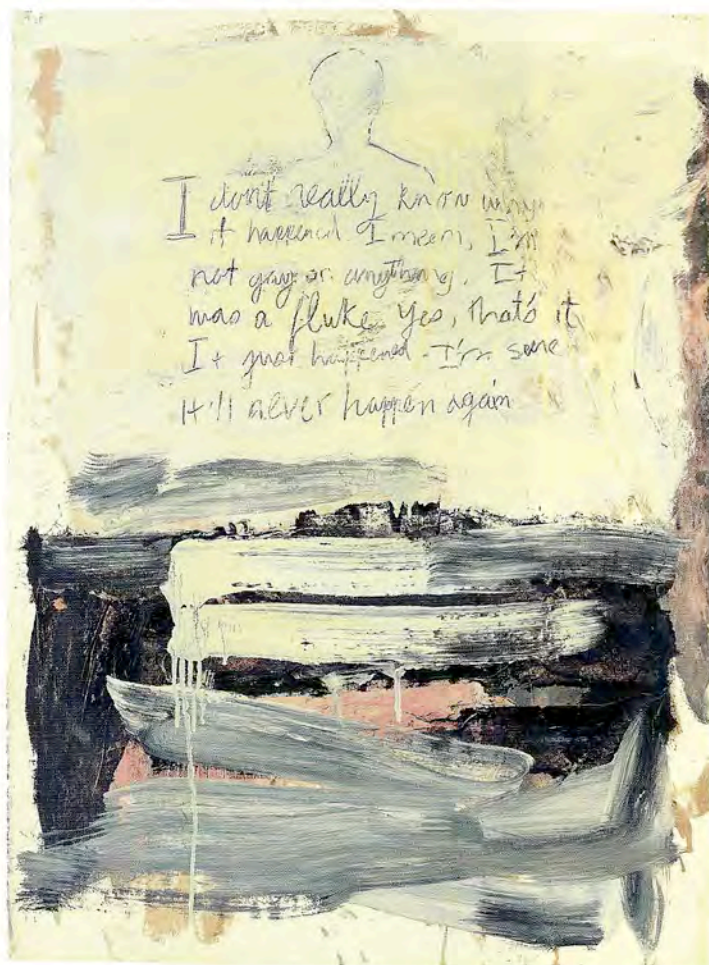 I don't really know why
it happened I mean, I'm
not gay or anything. It
was a fluke. Yes, that's it
It just happened. I'm sure
It'll never happen again